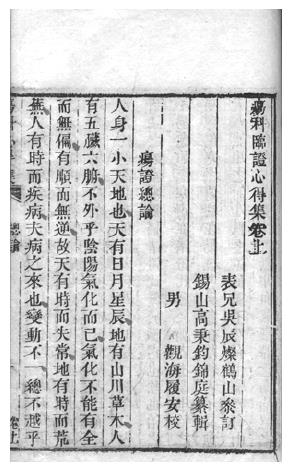 瘍科臨證心得集卷上
表兄吳辰燦鶴山叅訂
錫山高秉鈞錦庭纂輯
男　觀海履安校
瘍證總論
人身一小天地也天有日月星辰地有山川草木人
有五臟六腑不外乎陰陽氣化而已氣化不能有全
而無偏有順而無逆故天有時而失常地有時而荒
無人有時而疾病夫病之來也變動不一總不越乎
總論
卷上